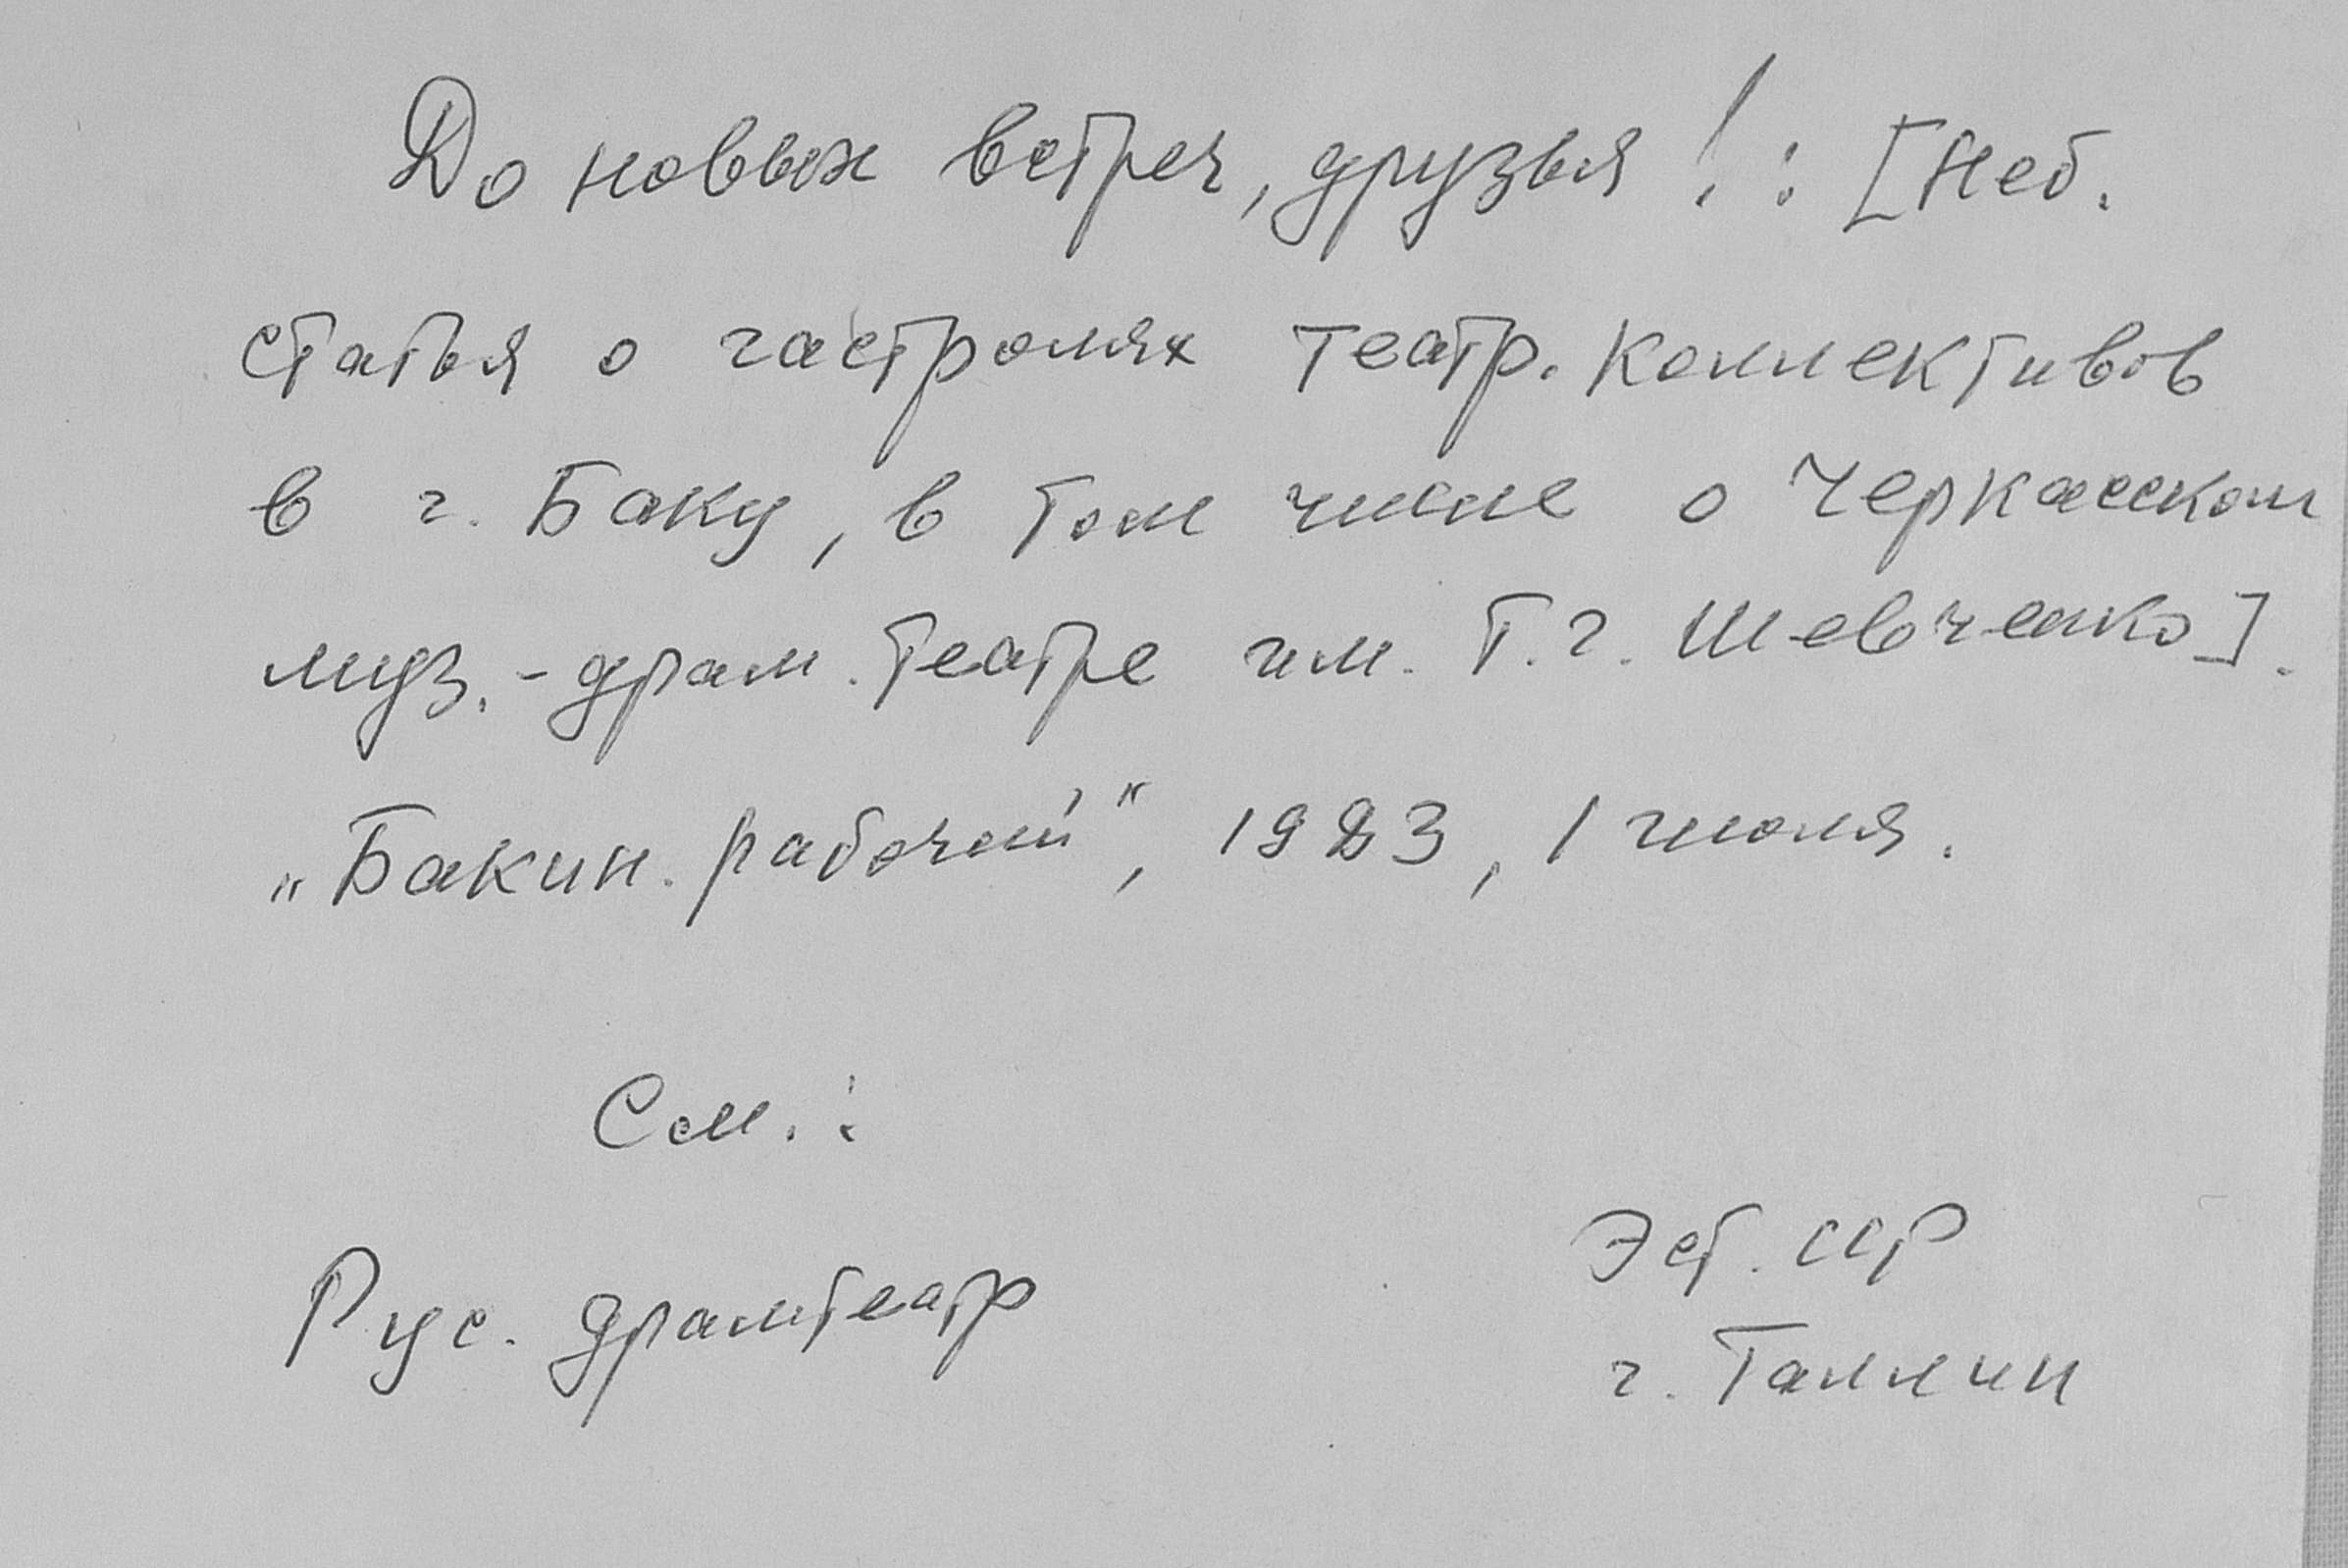 До новых встреч, друзья!: [Неб.
статья о гастролях театр. коллективов
в г. Баку, в том числе о Черкасском
муз.-драм. театре им. Т.Г. Шевченко].
„Бакин. рабочий“, 1983, 1 июля.
См.:
Эст. ССР
Рус. драмтеатр
г. Таллин